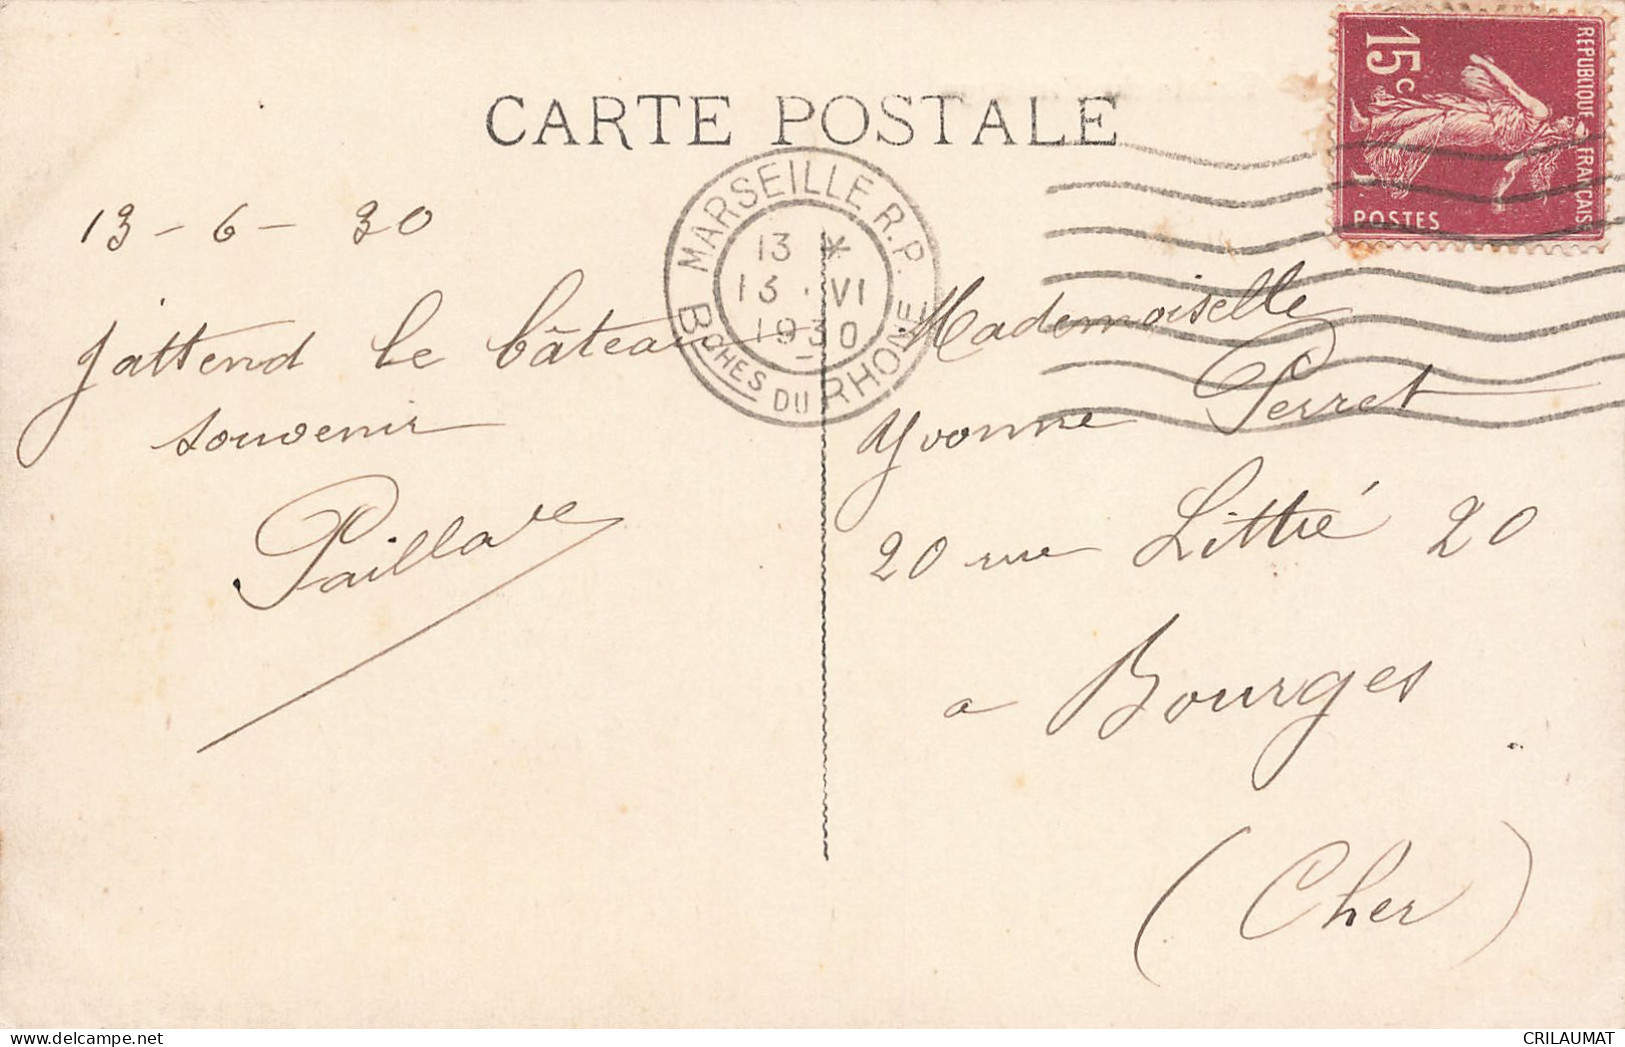 CARTE POSTALE
REPUBLIQUE FRANÇAISE
15c
POSTES
MARSEILLE R.P.
13 *
13 · VI
1930
BCHES DU RHONE
13 - 6 - 30
J'attend le bâteau
souvenir
Mademoiselle
Yvonne Perret
20 rue Littré 20
a Bourges
(Cher)
CRILAUMAT